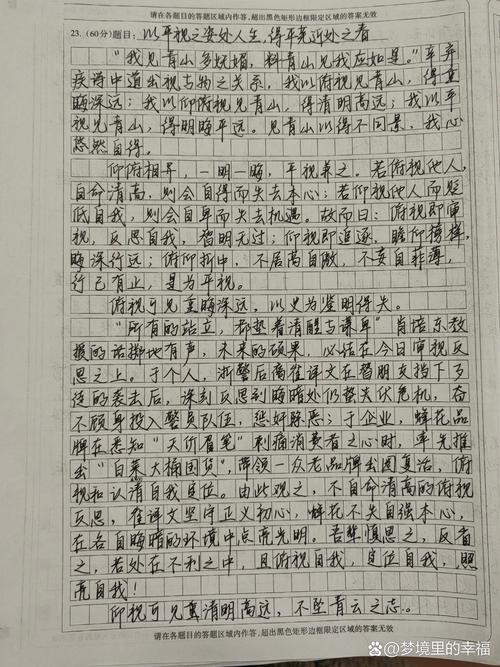 请在各题目的答题区域内作答，超出黑色矩形边框限定区域的答案无效
23. (60分) 题目: 以平视之姿处人生，得平芜近处之春
"我见青山多妩媚，料青山见我应如是。"辛弃
疾诗中道出视与物之关系，我以俯视见青山，得重
晦深远；我以仰视见青山，得清明高远；我以平
视见青山，得明晦平远。见青山以得不同景，我心
悠然自得。
仰俯相异，一明一晦，平视兼之。若俯视他人，
自命清高，则会自得而失去本心；若仰视他人而贬
低自我，则会自卑而失去机遇。故而曰：俯视即审
视，反思自我，智明无过；仰视即追逐，瞻仰榜样，
晦深行远；俯仰折中，不居高自傲，不妄自菲薄，
行己有止，是为平视。
俯视可见重晦深远，以史为鉴明得失。
"所有的站立，都垫着清醒与谦卑"肖培东教
授的话掷地有声，未来的硕果，必活在今日审视反
思之上。于个人，浙警后高崔译文在替朋友挡下歹
徒的袭击后，深刻反思到晦暗处仍蛰伏危机，奋
不顾身投入警员队伍，惩奸除恶；于企业，蜂花品
牌在悉知"天价眉笔"刺痛消费者之心时，率先推
出"白菜大桶国货"，带领一众老品牌出圈复活，俯
视和认清自我定位。由此观之，不自命清高的俯视
反思，崔译文坚守正义初心，蜂花不失自强本心，
在各自晦暗的环境中点亮光明。吾辈慎思之，反省
之，若处在不利之中，且俯视自我，定位自我，照
亮自我！
仰视可见重清明高远，不坠青云之志。
请在各题目的答题区域内作答，超出黑色矩形边框限定区域的答案无效
@梦境里的幸福